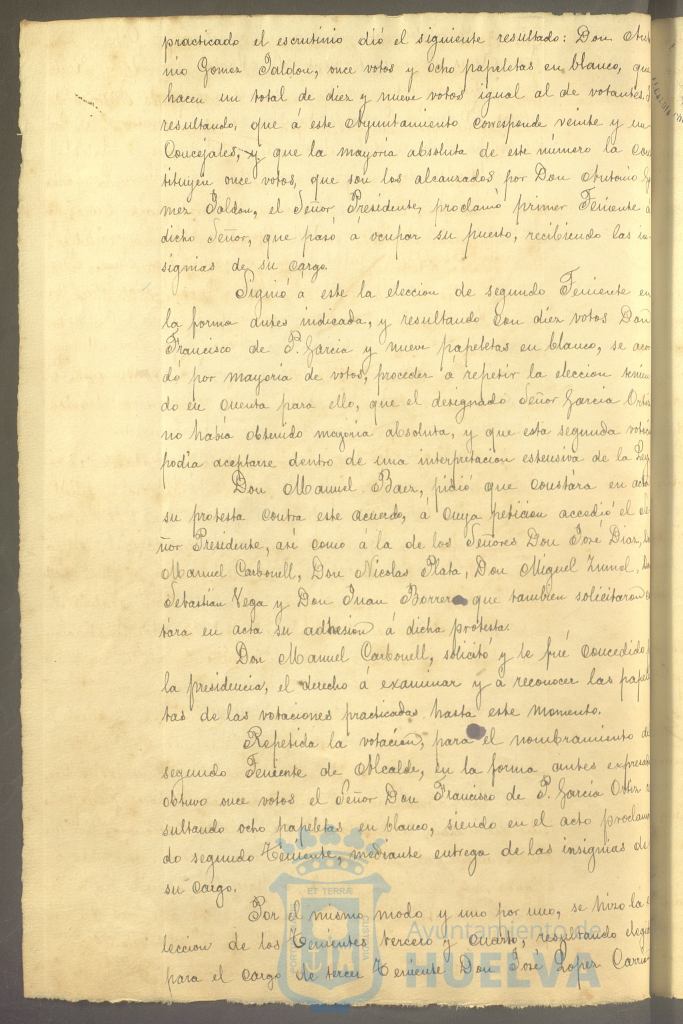 practicado el escrutinio dió el siguiente resultado: Don Anto
nio Gomez Jaldon, once votos y ocho papeletas en blanco, que
hacen un total de diez y nueve votos igual al de votantes.
resultando, que á este Ayuntamiento corresponde veinte y un
Concejales, y que la mayoria absoluta de este número la con
stituyen once votos, que son los alcanzados por Don Antonio Go
mez Jaldon, el Señor Presidente, proclamó primer Teniente á
dicho Señor, que pasó á ocupar su puesto, recibiendo las in-
signias de su cargo.
Siguió á este la eleccion de segundo Teniente en
la forma antes indicada, y resultando con diez votos Don
Francisco de P. Garcia y nueve papeletas en blanco, se acor
dó por mayoria de votos, proceder á repetir la eleccion tenien
do en cuenta para ello, que el designado Señor Garcia Ortiz
no habia obtenido mayoria absoluta, y que esta segunda votacio
podia aceptarse dentro de una interpretacion estensiva de la Ley
Don Manuel Baez, pidió que constára en acta
su protesta contra este acuerdo, á cuya peticion accedió el Se
ñor Presidente, asi como á la de los Señores Don José Diaz,
Manuel Carbonell, Don Nicolas Plata, Don Miguel
Sebastian Vega y Don Juan Borrero que tambien solicitaron
tára en acta su adhesion á dicha protesta.
Don Manuel Carbonell, solicitó y le fué concedido
la presidencia, el derecho á examinar y á reconocer las pape
tas de las votaciones practicadas hasta este momento.
Repetida la votacion, para el nombramiento de
segundo Teniente de Alcalde, en la forma antes expresada
obtuvo once votos el Señor Don Francisco de P. Garcia Ortiz
sultando ocho papeletas en blanco, siendo en el acto proclama
do segundo Teniente, mediante entrega de las insignias de
su cargo.
Por el mismo modo y uno por uno, se hizo la e
leccion de los Tenientes tercero y cuarto, resultando elegido
para el cargo de tercer Teniente Don José Lopez
ET TERRÆ
Ayuntamiento de
HUELVA